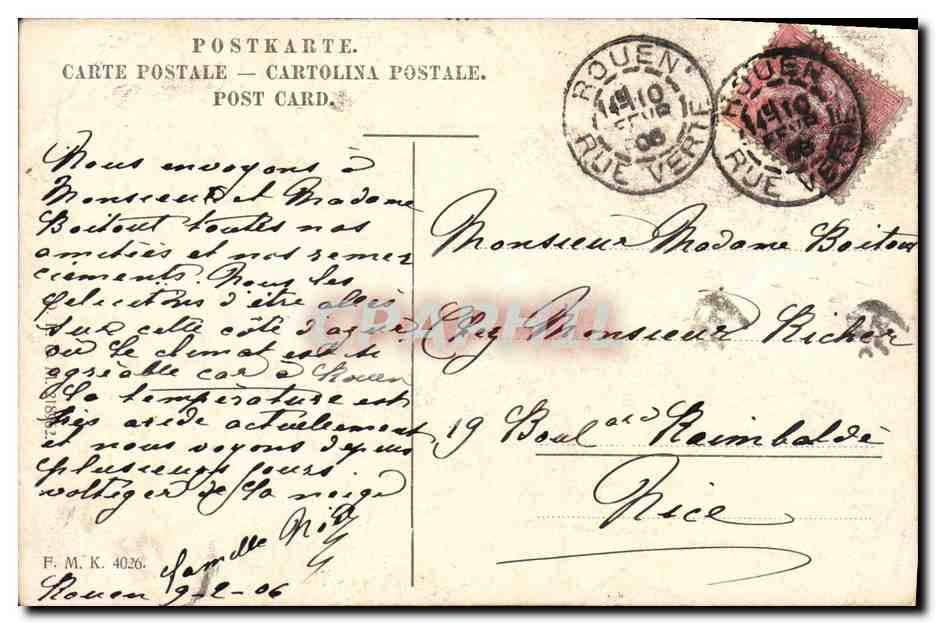 POSTKARTE.
CARTE POSTALE — CARTOLINA POSTALE.
POST CARD.
ROUEN
10
FEVR
06
RUE VERTE
ROUEN
10
FEVR
06
RUE VERTE
Nous envoyons à
Monsieur et Madame
Boitout toutes nos
amitiés et nos remer
ciements. Nous les
félicitons d'être allés
sur cette côte d'azur
où le climat est si
agréable car à Rouen
la température est
très aride actuellement
et nous voyons depuis
plusieurs jours
voltiger de la neige
Famille
Rouen 9-2-06
F. M. K. 4026.
Monsieur Madame Boitout
Chez Monsieur Richer
19 Boulard Raimbaldi
Nice
CPAPHIL